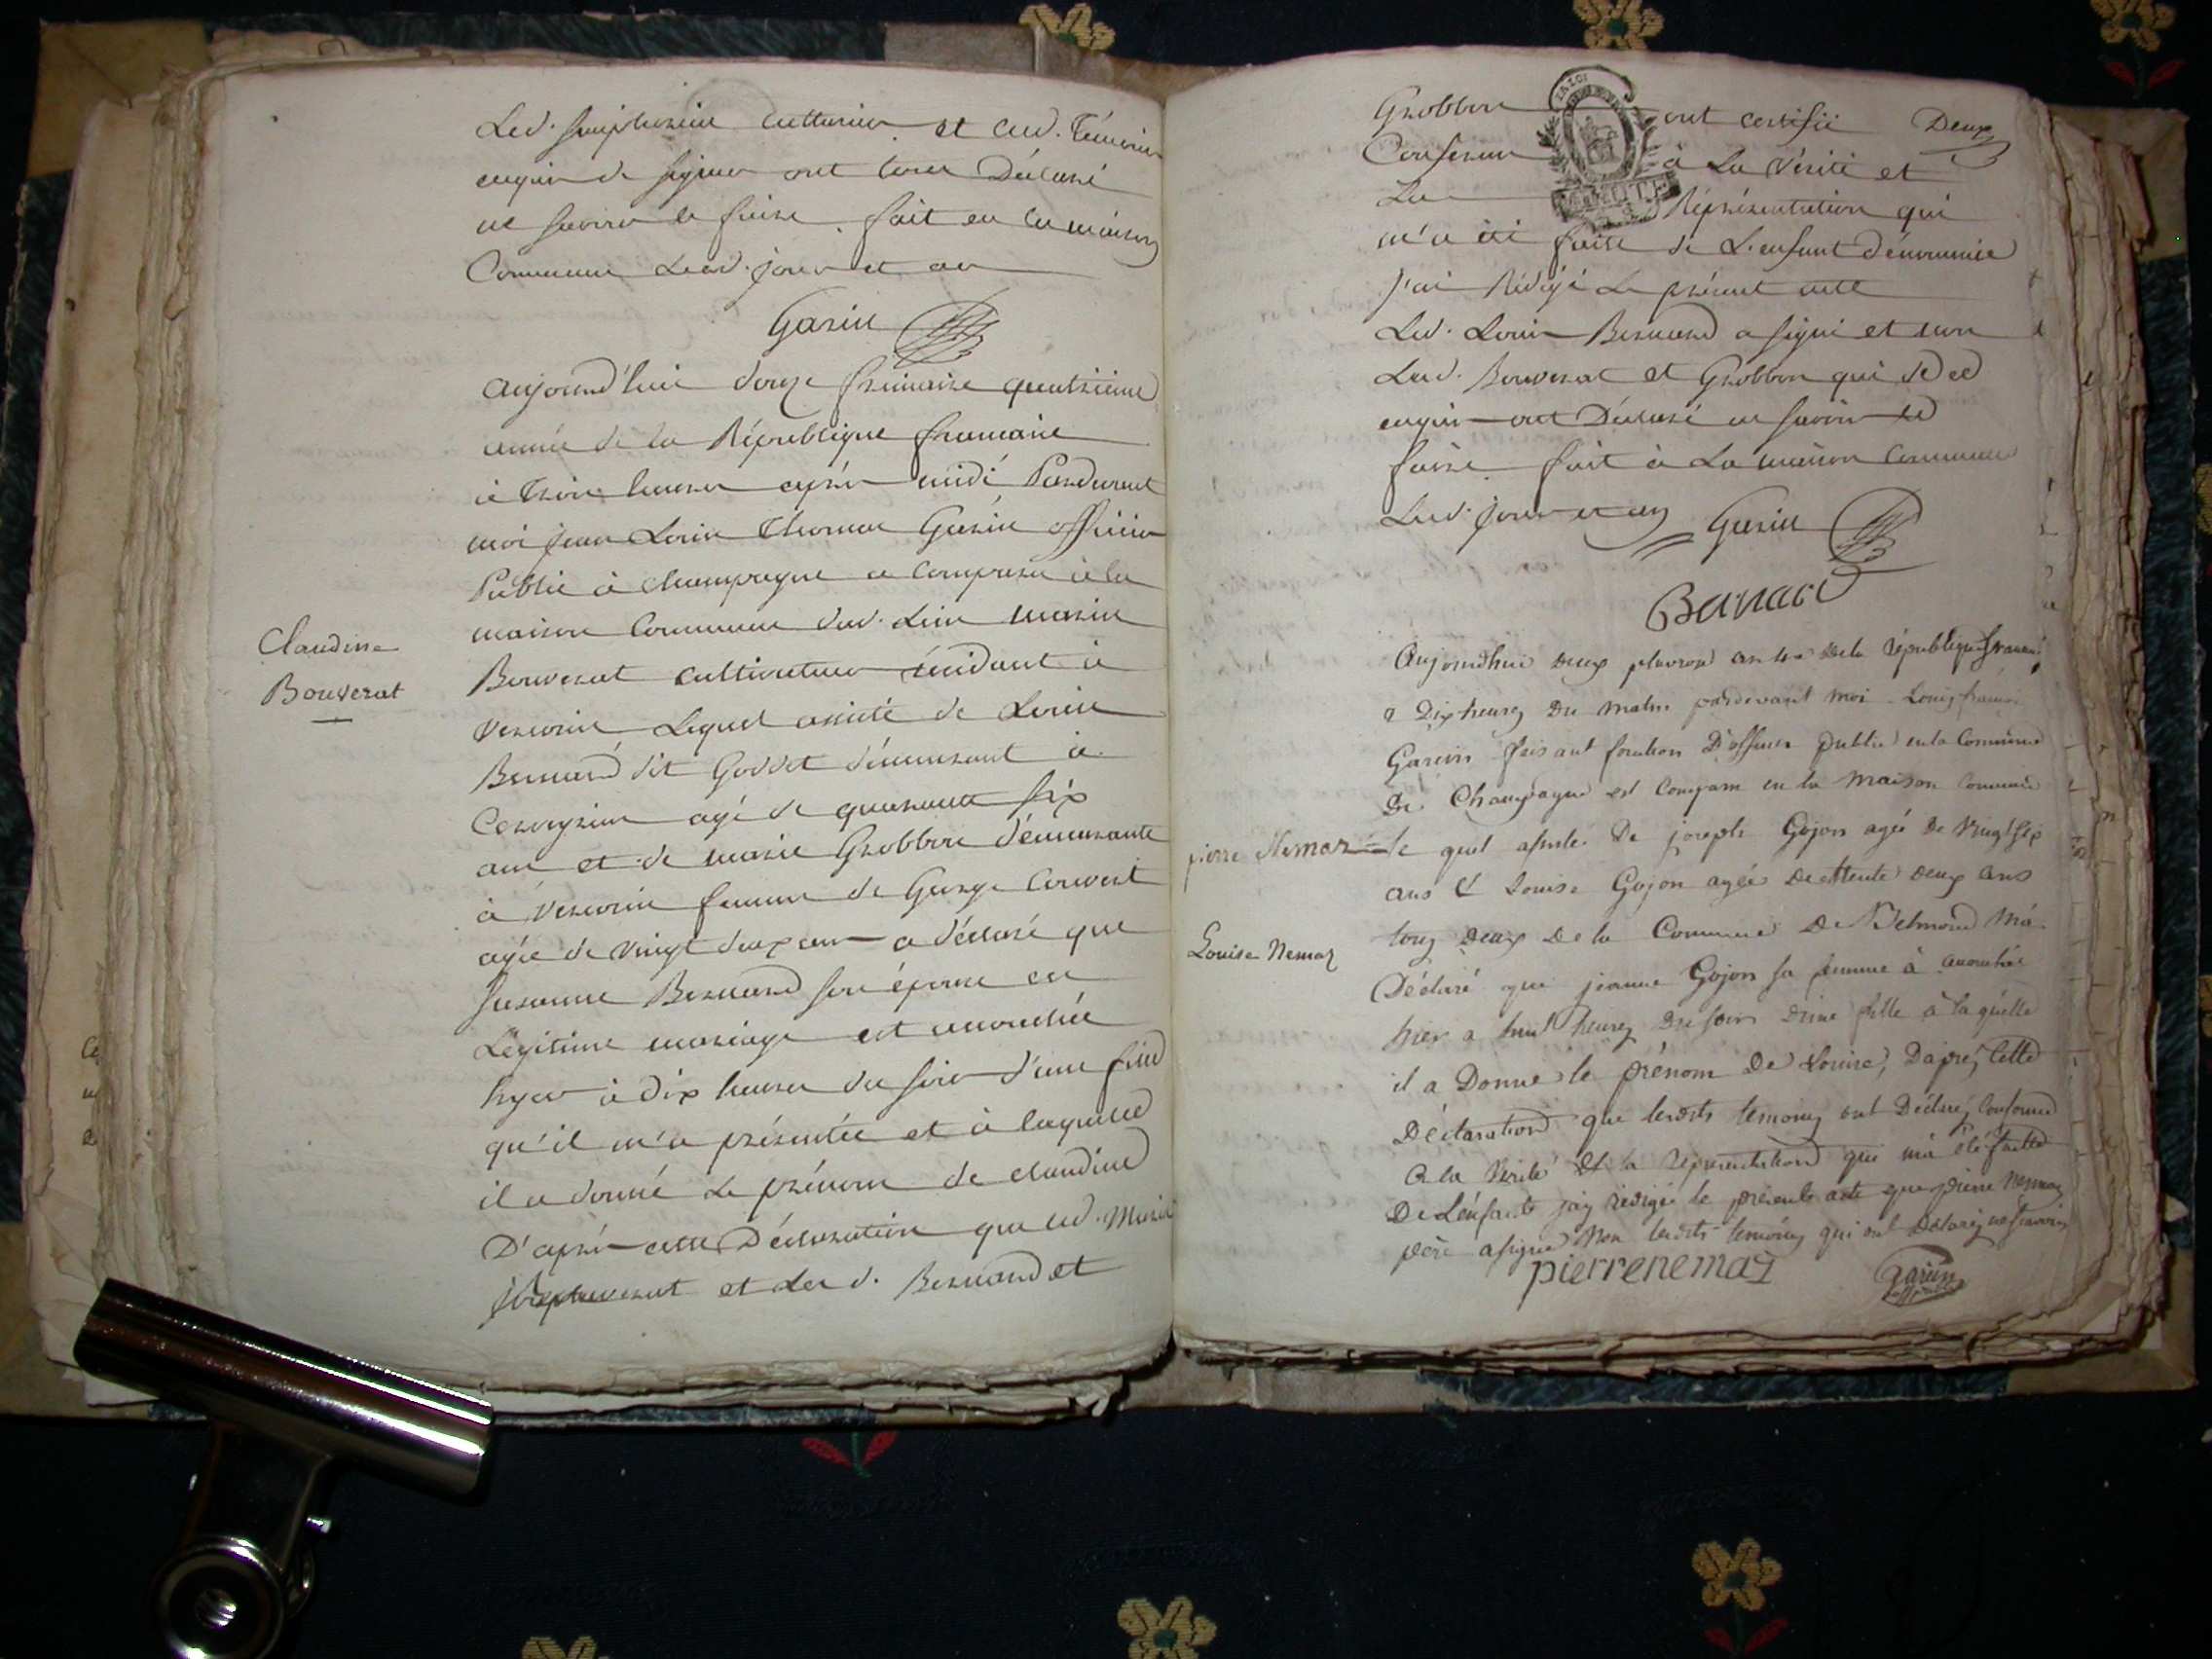 et aud. témoins
enquis de signer ont tous Déclaré
ne savoir le faire. fait en la maison
Commune Lesd. jour et an
Garin
aujourd'hui douze frimaire quatrième
année de la République francaise
à trois heures après midi Pardevant
moi jean Louis Thomas Garin officier
Public à champagne a comparu à la
maison Commune
Claudine
Bouverat
Bouverat cultivateur résidant à
Lequel assisté de Louis
Bernard dit Goddet démeurant à
Cerveyrieu agé de quarante six
ans et de marie Grobbon démeurante
à femme de George
agée de vingt deux ans a déclaré que
Susanne Bernard son épouse en
Légitime mariage est accouchée
hyer à dix heures du soir d'une fille
qu'il m'a présentée et à laquelle
il a donné Le prénom de claudine
D'après cette Déclaration que
et Les d. Bernard et
Deux
Grobbon ont certifié
Conforme à La Vérité et
La Réprésentation qui
m'a été faite de L'enfant dénommée
J'ai Rédigé Le présent acte
Led. Louis Bernard a signé et non
Lesd. Bouverat et Grobbon qui de ce
enquis ont Déclaré ne savoir le
faire fait à La maison Commune
Lesd. jour et an Garin
Bernard
Aujourdhui deux pluviose an de la république francaise
a Dix heures Du matin pardevant moi Louis francois
Garin faisant fonction D'officier public en la Commune
De Champagne est Comparu en la maison Commune
pierre Nemoz le quel assisté De joseph Gojon agée De vingt six
ans & Louise Gojon agée de trente deux ans
tous deux De la Commune De Belmond ma
Louise Nemoz
Déclaré que jeanne Gojon sa femme à accouchée
hier a huit heures Du soir Dune fille à laquelle
il a Donné le prénom De Louise, Daprés Cette
Déclaration que lesdits temoins ont Déclarés Conforme
a la Vérité & la representation qui m'a été faitte
De Lenfant jay redigée le présent acte que pierre Nemoz
père a signé Non lesdits temoins qui ont Déclarés ne scavoir
pierrenemoz
Garin